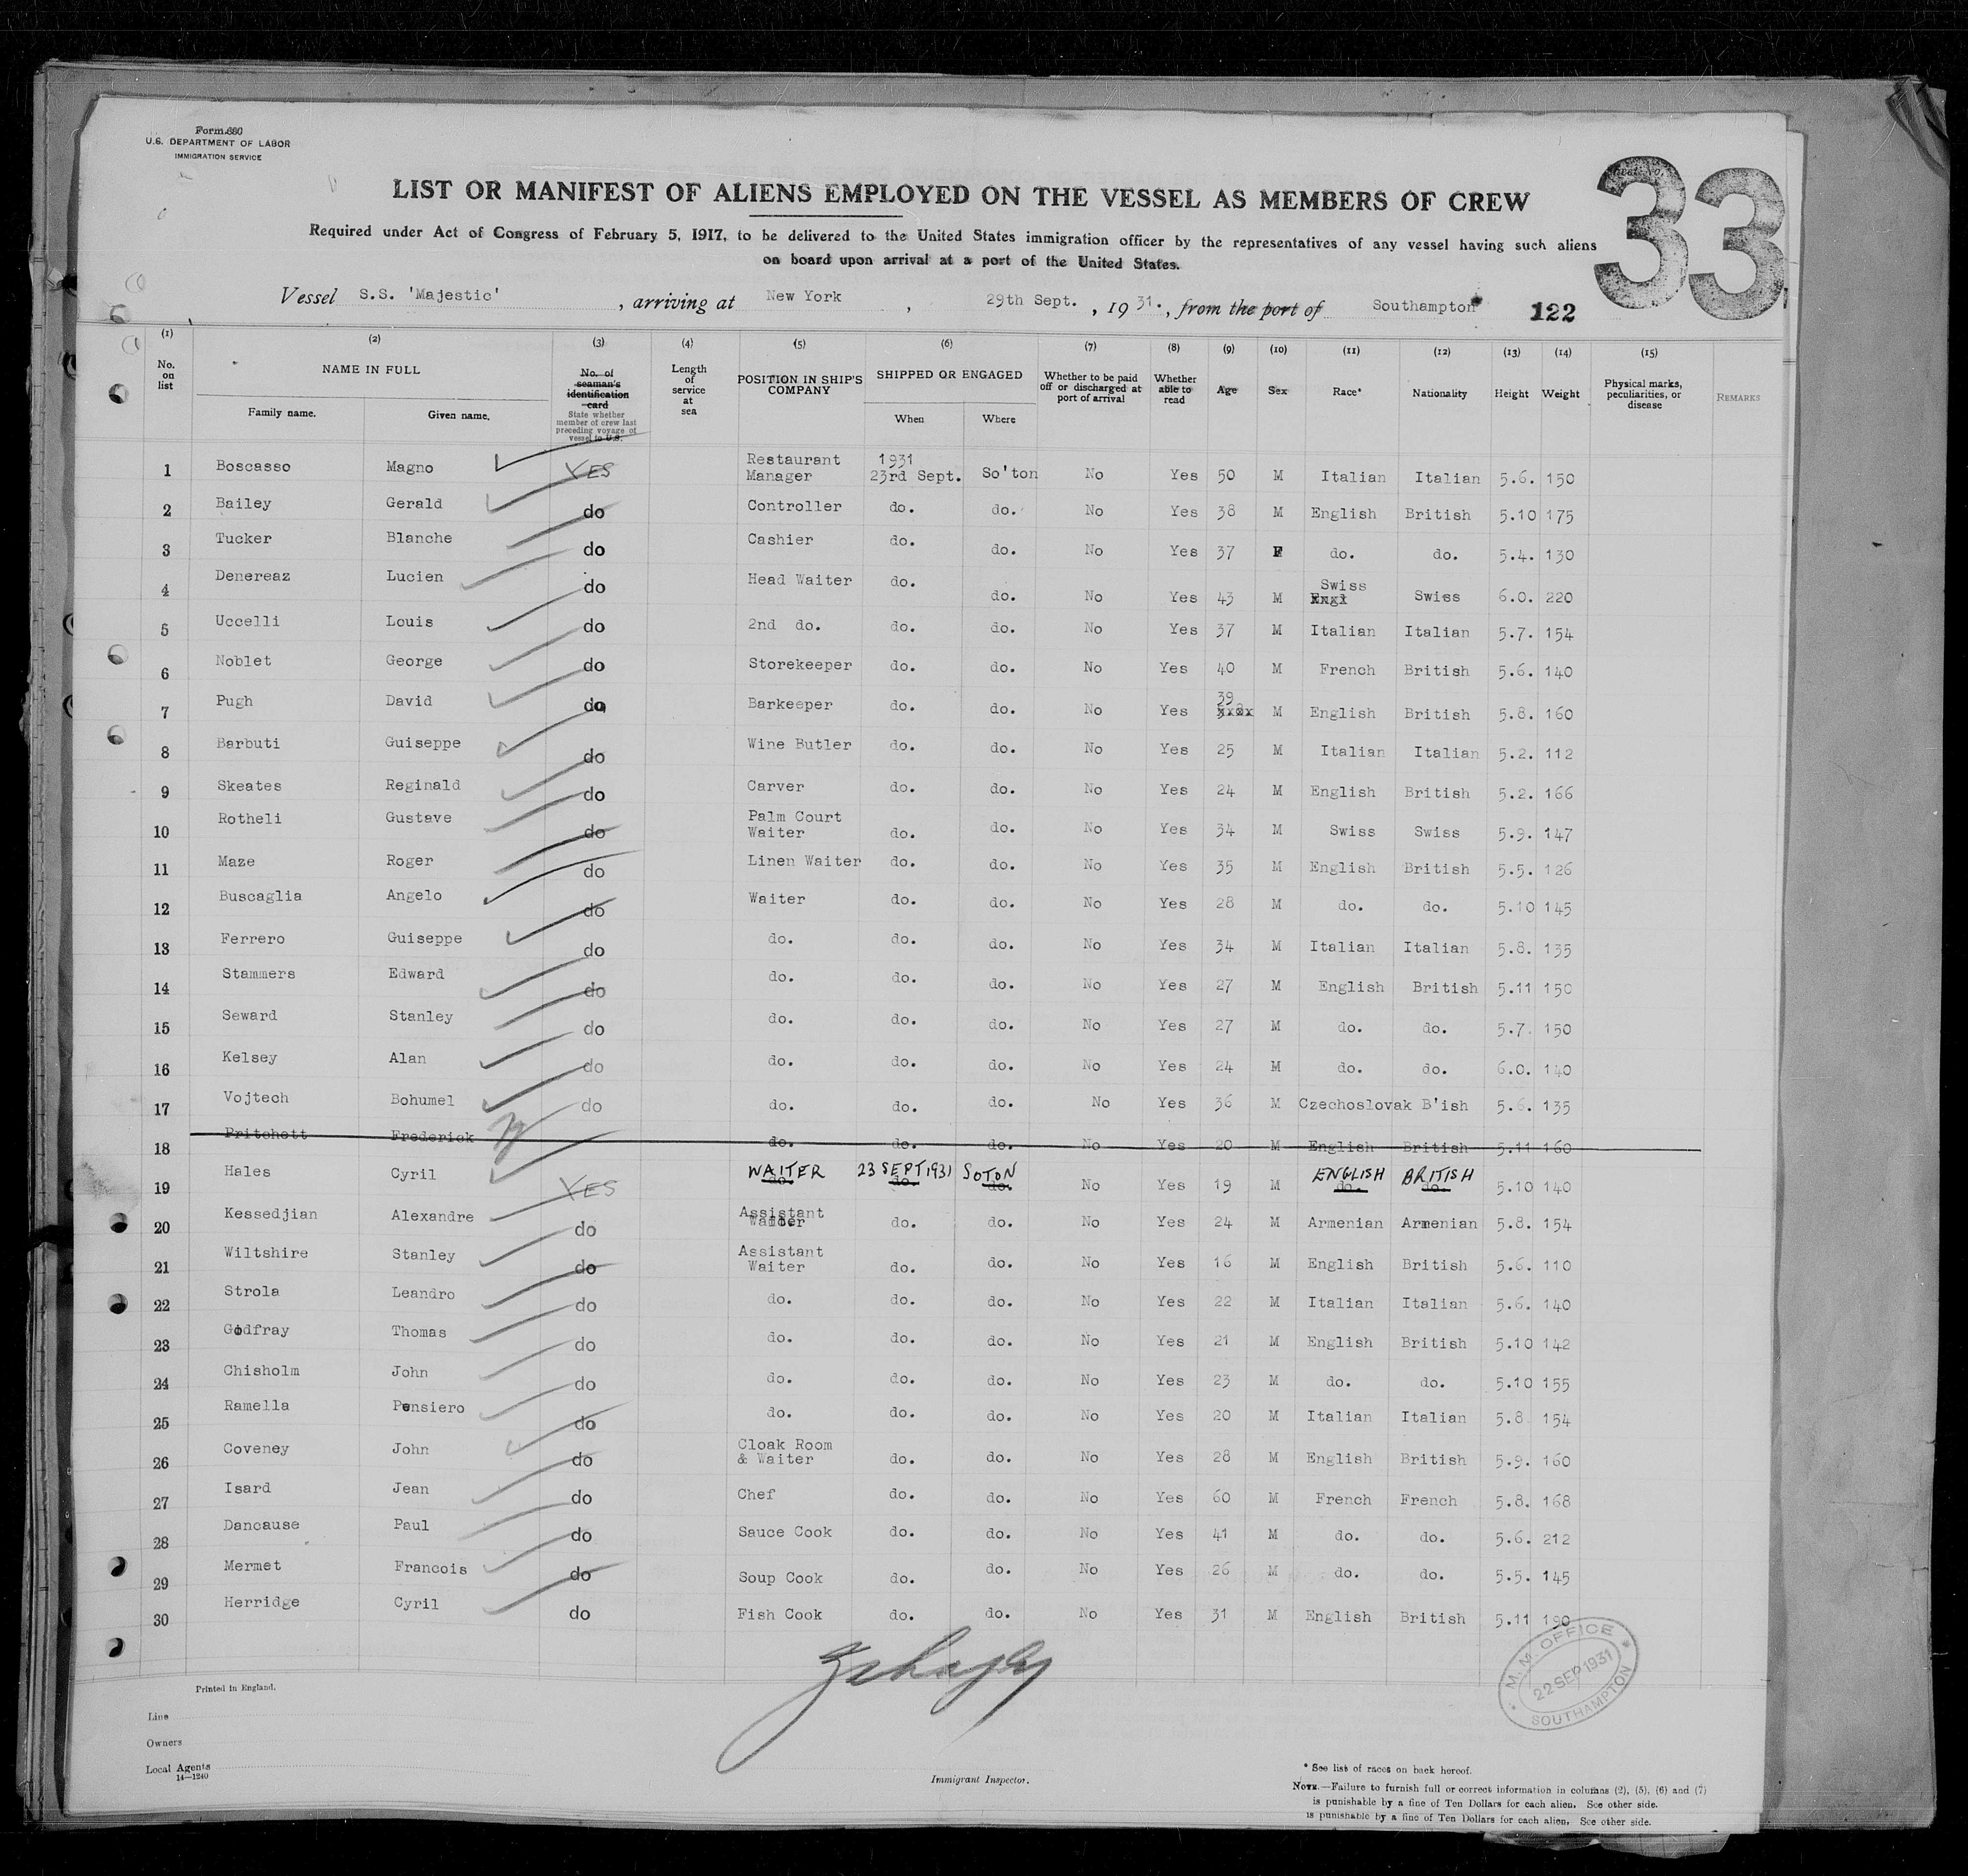 Form 680
U.S. DEPARTMENT OF LABOR
IMMIGRATION SERVICE
33
LIST OR MANIFEST OF ALIENS EMPLOYED ON THE VESSEL AS MEMBERS OF CREW
Required under Act of Congress of February 5, 1917, to be delivered to the United States immigration officer by the representatives of any vessel having such aliens
on board upon arrival at a port of the United States.
Vessel S.S. 'Majestic' , arriving at New York , 29th Sept. , 19 31. , from the port of Southampton 122
(1) (2) (3) (4) (5) (6) (7) (8) (9) (10) (11) (12) (13) (14) (15)
No. on list NAME IN FULL Family name. Given name. No. of seaman's identification card State whether member of crew last preceding voyage of vessel to U.S. Length of service at sea POSITION IN SHIP'S COMPANY SHIPPED OR ENGAGED When Where Whether to be paid off or discharged at port of arrival Whether able to read Age Sex Race* Nationality Height Weight Physical marks, peculiarities, or disease REMARKS
1 Boscasso Magno YES Restaurant Manager 1931 23rd Sept. So'ton No Yes 50 M Italian Italian 5.6. 150
2 Bailey Gerald do Controller do. do. No Yes 38 M English British 5.10 175
3 Tucker Blanche do Cashier do. do. No Yes 37 F do. do. 5.4. 130
4 Denereaz Lucien do Head Waiter do. do. No Yes 43 M Swiss Engl Swiss 6.0. 220
5 Uccelli Louis do 2nd do. do. do. No Yes 37 M Italian Italian 5.7. 154
6 Noblet George do Storekeeper do. do. No Yes 40 M French British 5.6. 140
7 Pugh David do Barkeeper do. do. No Yes 39 M English British 5.8. 160
8 Barbuti Guiseppe do Wine Butler do. do. No Yes 25 M Italian Italian 5.2. 112
9 Skeates Reginald do Carver do. do. No Yes 24 M English British 5.2. 166
10 Rotheli Gustave do Palm Court Waiter do. do. No Yes 34 M Swiss Swiss 5.9. 147
11 Maze Roger do Linen Waiter do. do. No Yes 35 M English British 5.5. 126
12 Buscaglia Angelo do Waiter do. do. No Yes 28 M do. do. 5.10 145
13 Ferrero Guiseppe do do. do. do. No Yes 34 M Italian Italian 5.8. 135
14 Stammers Edward do do. do. do. No Yes 27 M English British 5.11 150
15 Seward Stanley do do. do. do. No Yes 27 M do. do. 5.7. 150
16 Kelsey Alan do do. do. do. No Yes 24 M do. do. 6.0. 140
17 Vojtech Bohumel do do. do. do. No Yes 36 M Czechoslovak B'ish 5.6. 135
18 Pritchett Frederick do. do. do. No Yes 20 M English British 5.11 160
19 Hales Cyril YES WAITER do. 23 SEPT 1931 do. SOTON do. No Yes 19 M ENGLISH do. BRITISH do. 5.10 140
20 Kessedjian Alexandre do Assistant Waiter do. do. No Yes 24 M Armenian Armenian 5.8. 154
21 Wiltshire Stanley do Assistant Waiter do. do. No Yes 16 M English British 5.6. 110
22 Strola Leandro do do. do. do. No Yes 22 M Italian Italian 5.6. 140
23 Godfray Thomas do do. do. do. No Yes 21 M English British 5.10 142
24 Chisholm John do do. do. do. No Yes 23 M do. do. 5.10 155
25 Ramella Pensiero do do. do. do. No Yes 20 M Italian Italian 5.8 154
26 Coveney John do Cloak Room & Waiter do. do. No Yes 28 M English British 5.9. 160
27 Isard Jean do Chef do. do. No Yes 60 M French French 5.8. 168
28 Dancause Paul do Sauce Cook do. do. No Yes 41 M do. do. 5.6. 212
29 Mermet Francois do Soup Cook do. do. No Yes 26 M do. do. 5.5. 145
30 Herridge Cyril do Fish Cook do. do. No Yes 31 M English British 5.11 190
M.M. OFFICE
22 SEP 1931
SOUTHAMPTON
Printed in England.
Line
Owners
Local Agents
14—1240
Immigrant Inspector.
* See list of races on back hereof.
NOTE.—Failure to furnish full or correct information in columns (2), (5), (6) and (7)
is punishable by a fine of Ten Dollars for each alien. See other side.
is punishable by a fine of Ten Dollars for each alien. See other side.